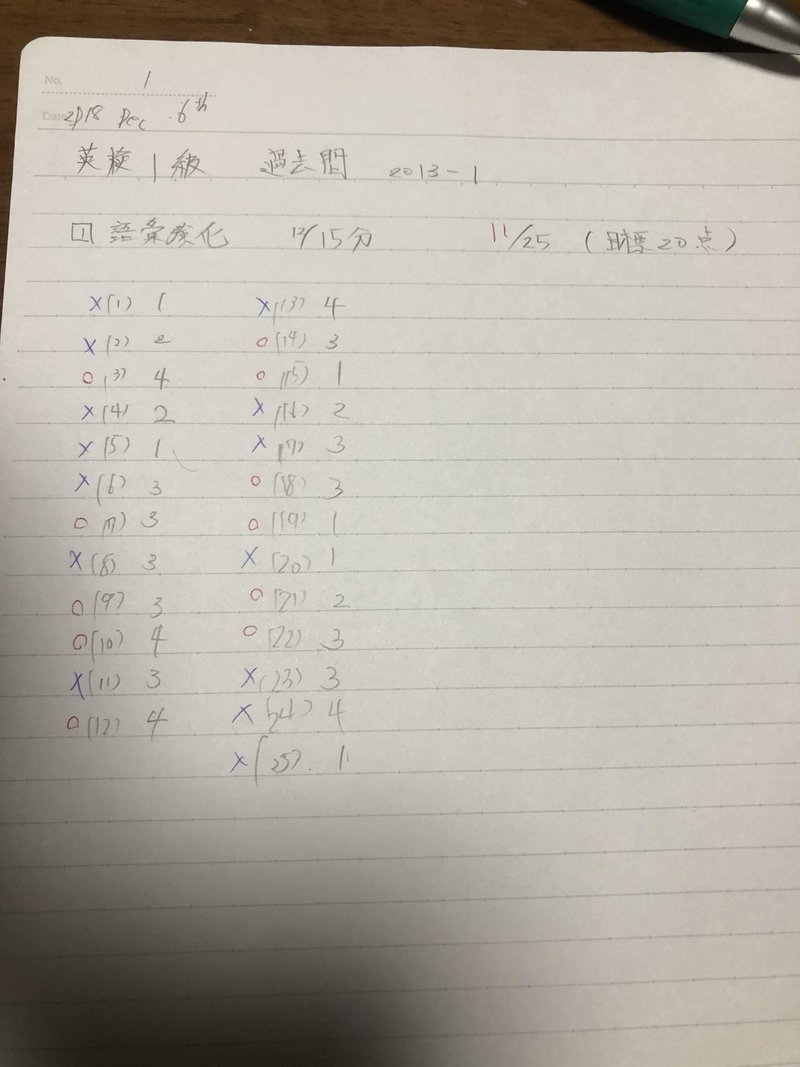 No. 1
Date 2018 Dec. 6th
英検1級 過去問 2013-1
1 語彙強化 12/15分 11/25 (目標20点)
×(1) 1 ×(13) 4
×(2) 2 ○(14) 3
○(3) 4 ○(15) 1
×(4) 2 ×(16) 2
×(5) 1 ×(17) 3
×(6) 3 ○(18) 3
○(7) 3 ○(19) 1
×(8) 3 ×(20) 1
○(9) 3 ○(21) 2
○(10) 4 ○(22) 3
×(11) 3 ×(23) 3
○(12) 4 ×(24) 4
×(25). 1